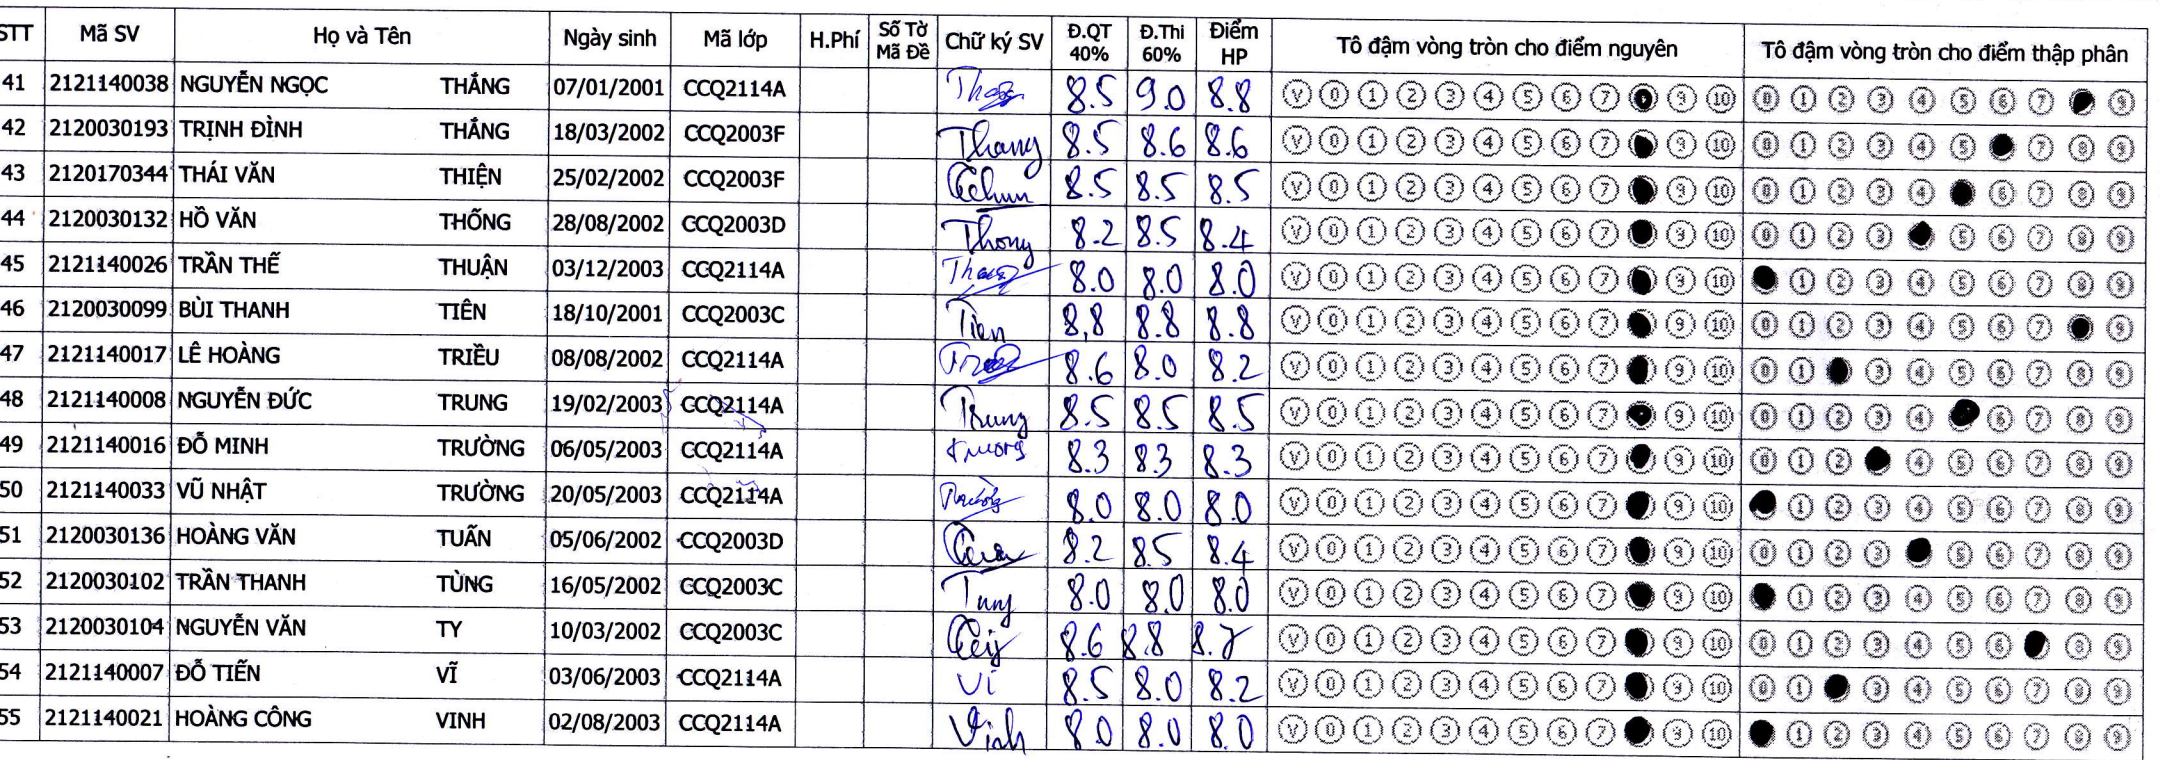 STT Mã SV Họ và Tên Ngày sinh Mã lớp H.Phí Số Tờ Mã Đề Chữ ký SV Đ.QT 40% Đ.Thi 60% Điểm HP Tô đậm vòng tròn cho điểm nguyên Tô đậm vòng tròn cho điểm thập phân
41 2121140038 NGUYỄN NGỌC THẮNG 07/01/2001 CCQ2114A 8.5 9.0 8.8 V 0 1 2 3 4 5 6 7 9 10 0 1 2 3 4 5 6 7 9
42 2120030193 TRỊNH ĐÌNH THẮNG 18/03/2002 CCQ2003F Thang 8.5 8.6 8.6 V 0 1 2 3 4 5 6 7 9 10 0 1 2 3 4 5 7 8 9
43 2120170344 THÁI VĂN THIỆN 25/02/2002 CCQ2003F 8.5 8.5 8.5 V 0 1 2 3 4 5 6 7 9 10 0 1 2 3 4 6 7 8 9
44 2120030132 HỒ VĂN THỐNG 28/08/2002 CCQ2003D Thong 8.2 8.5 8.4 V 0 1 2 3 4 5 6 7 9 10 0 1 2 3 5 6 7 8 9
45 2121140026 TRẦN THẾ THUẬN 03/12/2003 CCQ2114A 8.0 8.0 8.0 V 0 1 2 3 4 5 6 7 9 10 1 2 3 4 5 6 7 8 9
46 2120030099 BÙI THANH TIÊN 18/10/2001 CCQ2003C Tien 8,8 8.8 8.8 V 0 1 2 3 4 5 6 7 9 10 0 1 2 3 4 5 6 7 9
47 2121140017 LÊ HOÀNG TRIỀU 08/08/2002 CCQ2114A 8.6 8.0 8.2 V 0 1 2 3 4 5 6 7 9 10 0 1 3 4 5 6 7 8 9
48 2121140008 NGUYỄN ĐỨC TRUNG 19/02/2003 CCQ2114A Trung 8.5 8.5 8.5 V 0 1 2 3 4 5 6 7 9 10 0 1 2 3 4 6 7 8 9
49 2121140016 ĐỖ MINH TRƯỜNG 06/05/2003 CCQ2114A truong 8.3 8.3 8.3 V 0 1 2 3 4 5 6 7 9 10 0 1 2 4 5 6 7 8 9
50 2121140033 VŨ NHẬT TRƯỜNG 20/05/2003 CCQ2114A 8.0 8.0 8.0 V 0 1 2 3 4 5 6 7 9 10 1 2 3 4 5 6 7 8 9
51 2120030136 HOÀNG VĂN TUẤN 05/06/2002 CCQ2003D 8.2 8.5 8.4 V 0 1 2 3 4 5 6 7 9 10 0 1 2 3 5 6 7 8 9
52 2120030102 TRẦN THANH TÙNG 16/05/2002 CCQ2003C Tung 8.0 8.0 8.0 V 0 1 2 3 4 5 6 7 9 10 1 2 3 4 5 6 7 8 9
53 2120030104 NGUYỄN VĂN TY 10/03/2002 CCQ2003C 8.6 8.8 8.7 V 0 1 2 3 4 5 6 7 9 10 0 1 2 3 4 5 6 8 9
54 2121140007 ĐỖ TIẾN VĨ 03/06/2003 CCQ2114A Vi 8.5 8.0 8.2 V 0 1 2 3 4 5 6 7 9 10 0 1 3 4 5 6 7 8 9
55 2121140021 HOÀNG CÔNG VINH 02/08/2003 CCQ2114A Vinh 8.0 8.0 8.0 V 0 1 2 3 4 5 6 7 9 10 1 2 3 4 5 6 7 8 9